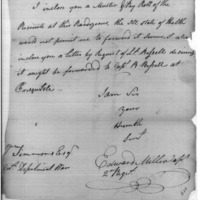 I inclose you a Muster & Pay Roll of the
Recruits at this Rendezvous the Ill state of Health
would not permit me to forward it sooner. I also
inclose you a letter by request of Lt. Russell he wishes
it might be forwarded to Capt. B Russell at
I am Sir
Your
Humble
Servt.
Edward Miller Capt
2d Regt.
Simmons Esqr.
War